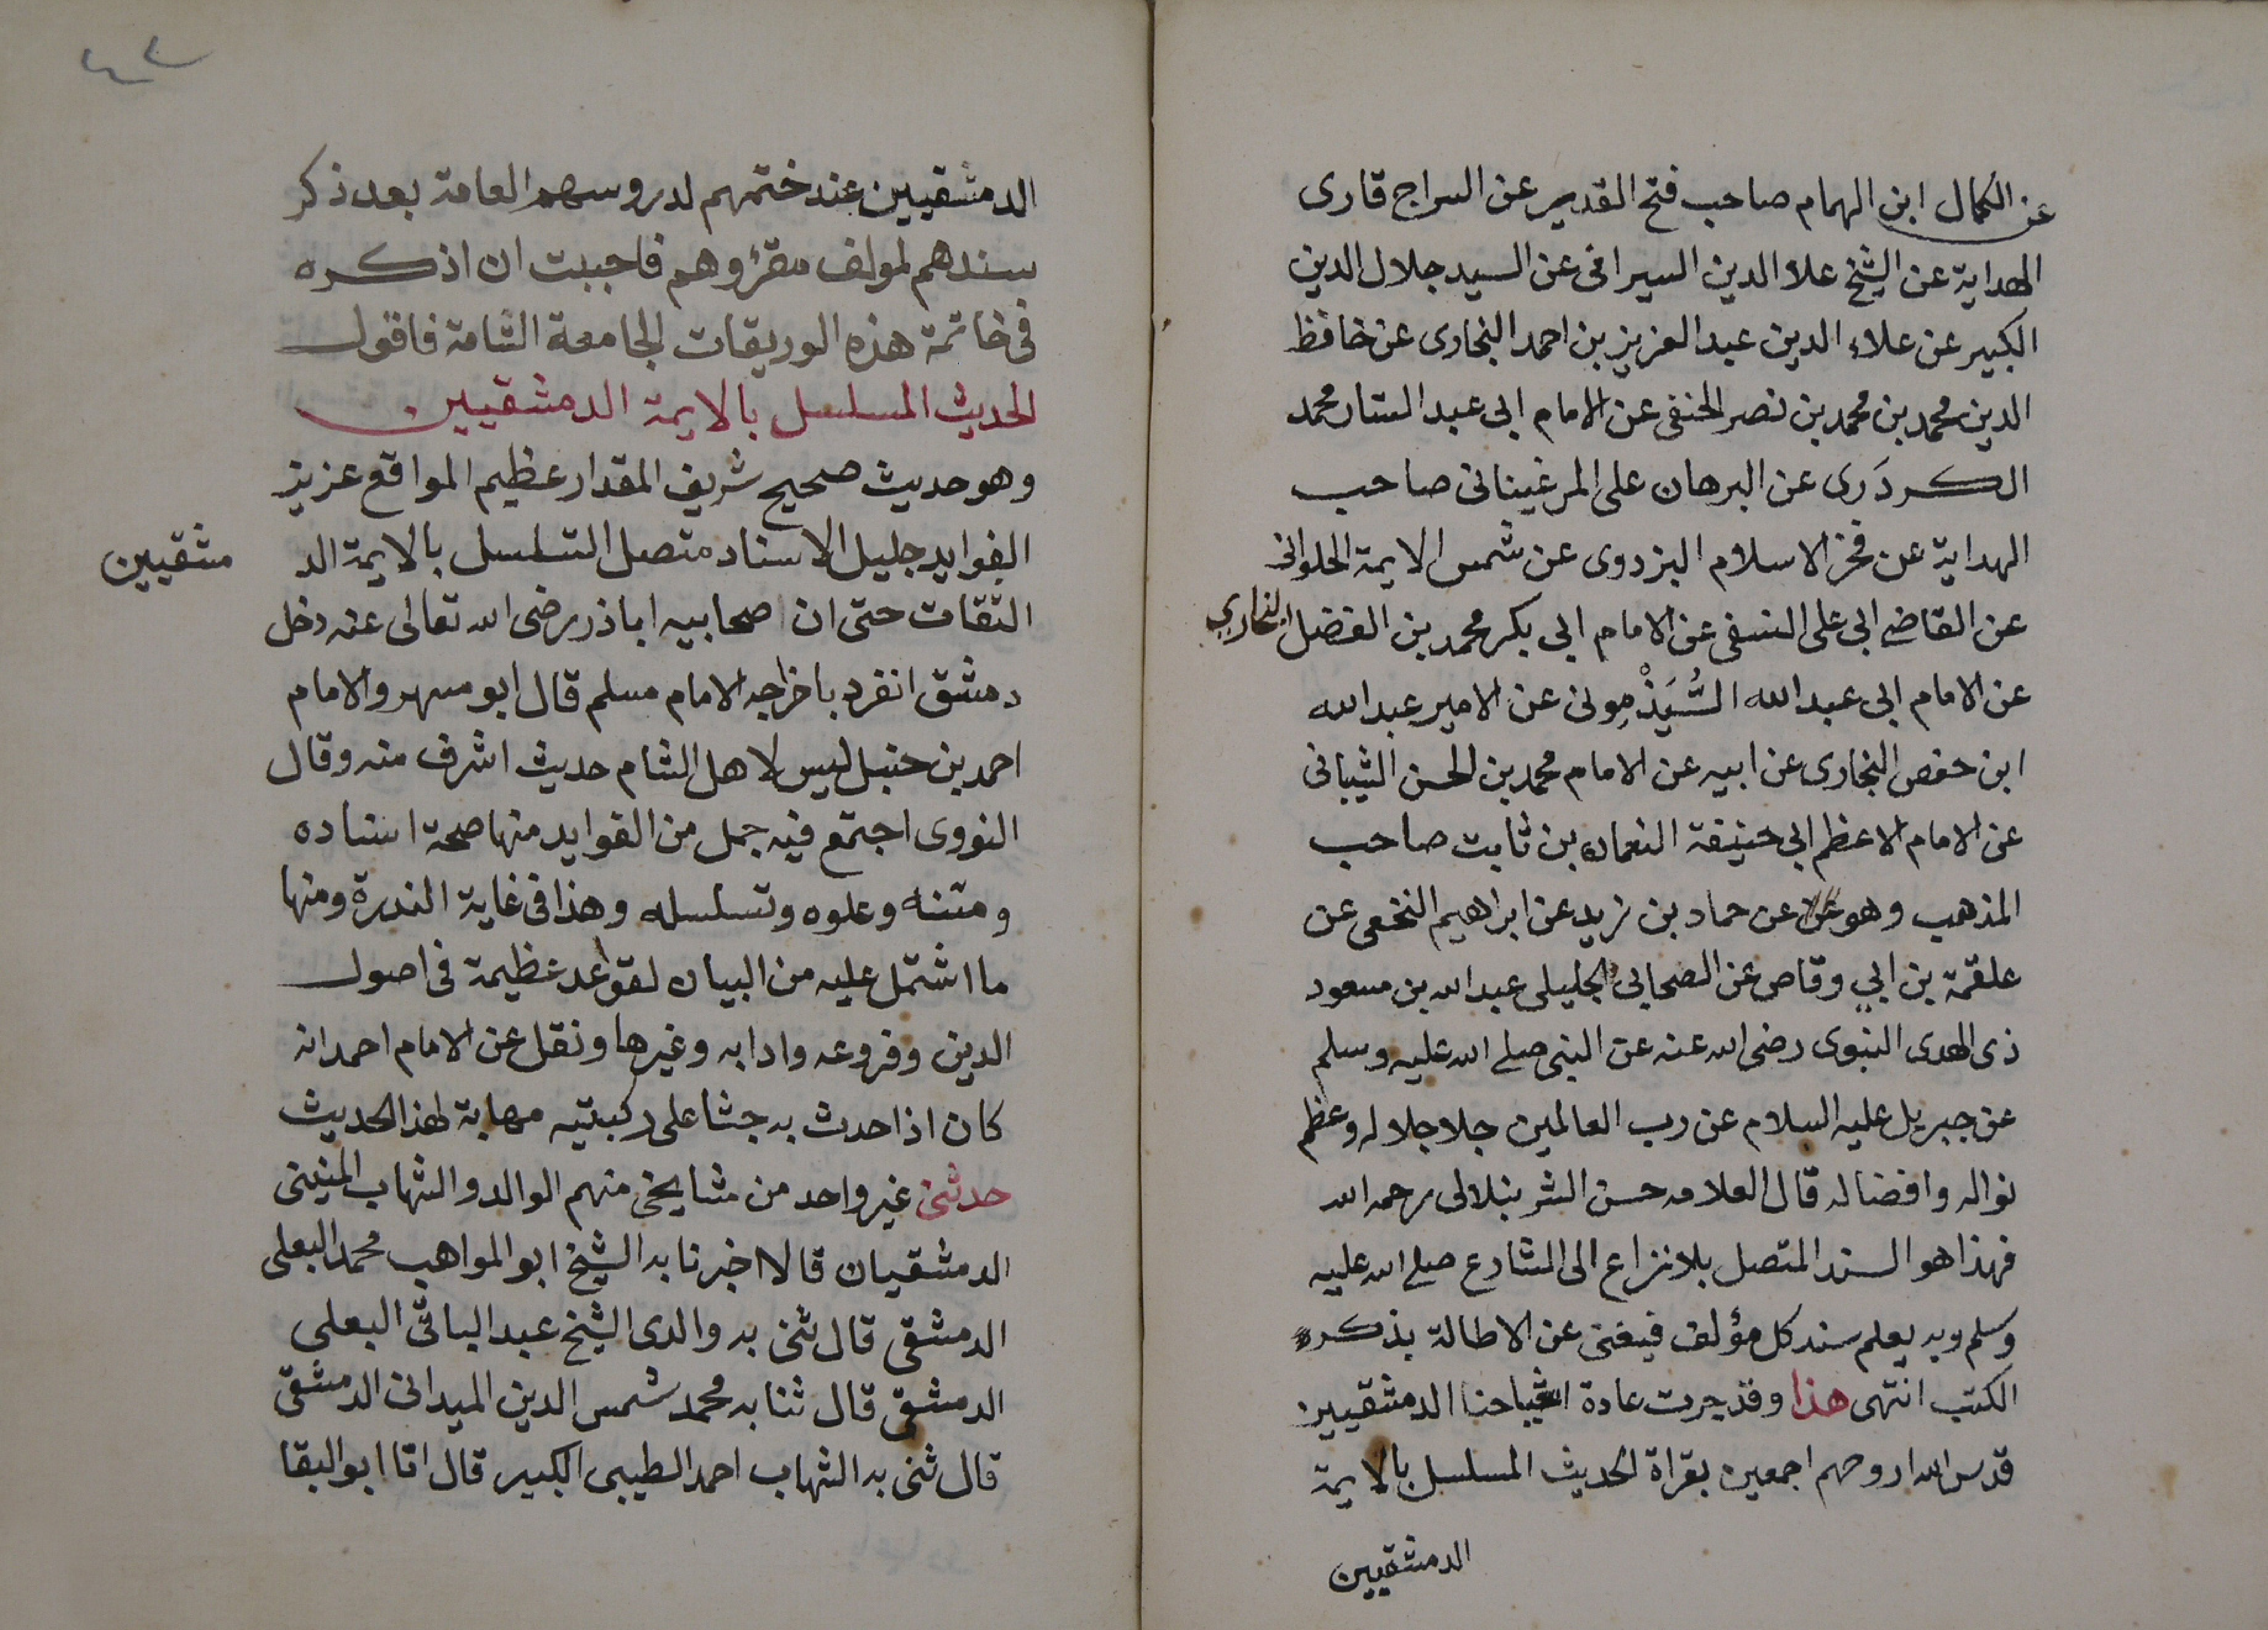 عن الكمال ابن الهمام صاحب فتح القدير عن السراج قارى
الهداية عن الشيخ علاء الدين السيرافى عن السيد جلال الدين
الكبير عن علاء الدين عبد العزيز بن احمد البخارى عن حافظ
الدين محمد بن محمد بن نصر الحنفى عن الامام ابى عبد الستار محمد
الكردَرى عن البرهان على المرغينانى صاحب
الهداية عن فخر الاسلام البزدوى عن شمس الايمة الحلوانى
عن القاضى ابى على النسفى عن الامام ابى بكر محمد بن الفضل البخاري
عن الامام ابى عبد الله السُّبَذْمونى عن الامير عبد الله
ابن حفص البخارى عن ابيه عن الامام محمد بن الحسن الشيبانى
عن الامام الاعظم ابى حنيفة النعمان بن ثابت صاحب
المذهب وهو عن عن حماد بن زيد عن ابراهيم النخعى عن
علقمة بن ابي وقاص عن الصحابى الجليلى عبد الله بن مسعود
ذى الهدى النبوى رضى الله عنه عن النبى صلى الله عليه وسلم
عن جبريل عليه السلام عن رب العالمين جلا جلاله وعظم
نواله وافضاله قال العلامه حسن الشرنبلالى رحمه الله
فهذا هو السند المتصل بلا نزاع الى الشارع صلى الله عليه
وسلم وبه يعلم سند كل مؤلف فيغنى عن الاطالة بذكره
الكتب انتهى هذا وقد جرت عادة اشياخنا الدمشقيين
قدس الله اروحهم اجمعين بقراة الحديث المسلسل بالايمة
الدمشقيين
٤٢
الدمشقيين عند ختمهم لدروسهم العامة بعد ذكر
سندهم لمولف مقرؤهم فاحببت ان اذكره
فى خاتمة هذه الوريقات الجامعة الشامة فاقول
الحديث المسلسل بالايمة الدمشقيين
وهو حديث صحيح شريف المقدار عظيم المواقع عزيز
الفوايد جليل الاسناد متصل التسلسل بالايمة الد مشقيين
الثقات حتى ان صحابيه اباذر رضى الله تعالى عنه دخل
دمشق انفرد باخراجه الامام مسلم قال ابو مسهر والامام
احمد بن حنبل ليس لاهل الشام حديث اشرف منه وقال
النووى اجتمع فيه جمل من الفوايد منها صحة اسناده
ومتنه وعلوه وتسلسله وهذا فى غاية الندرة ومنها
ما اشتمل عليه من البيان لقواعد عظيمة فى اصول
الدين وفروعه وادابه وغيرها ونقل عن الامام احمد انه
كان اذا حدث به جثا على ركبتيه مهابة لهذا الحديث
حدثنى غير واحد من مشايخى منهم الوالد والشهاب المنينى
الدمشقيان قالا اخبرنا به الشيخ ابو المواهب محمد البعلى
الدمشقي قال ثنى به والدى الشيخ عبد الباقى البعلي
الدمشقي قال ثنا به محمد شمس الدين الميدانى الدمشقى
قال ثنى به الشهاب احمد الطيبى الكبير قال انا ابو البقا